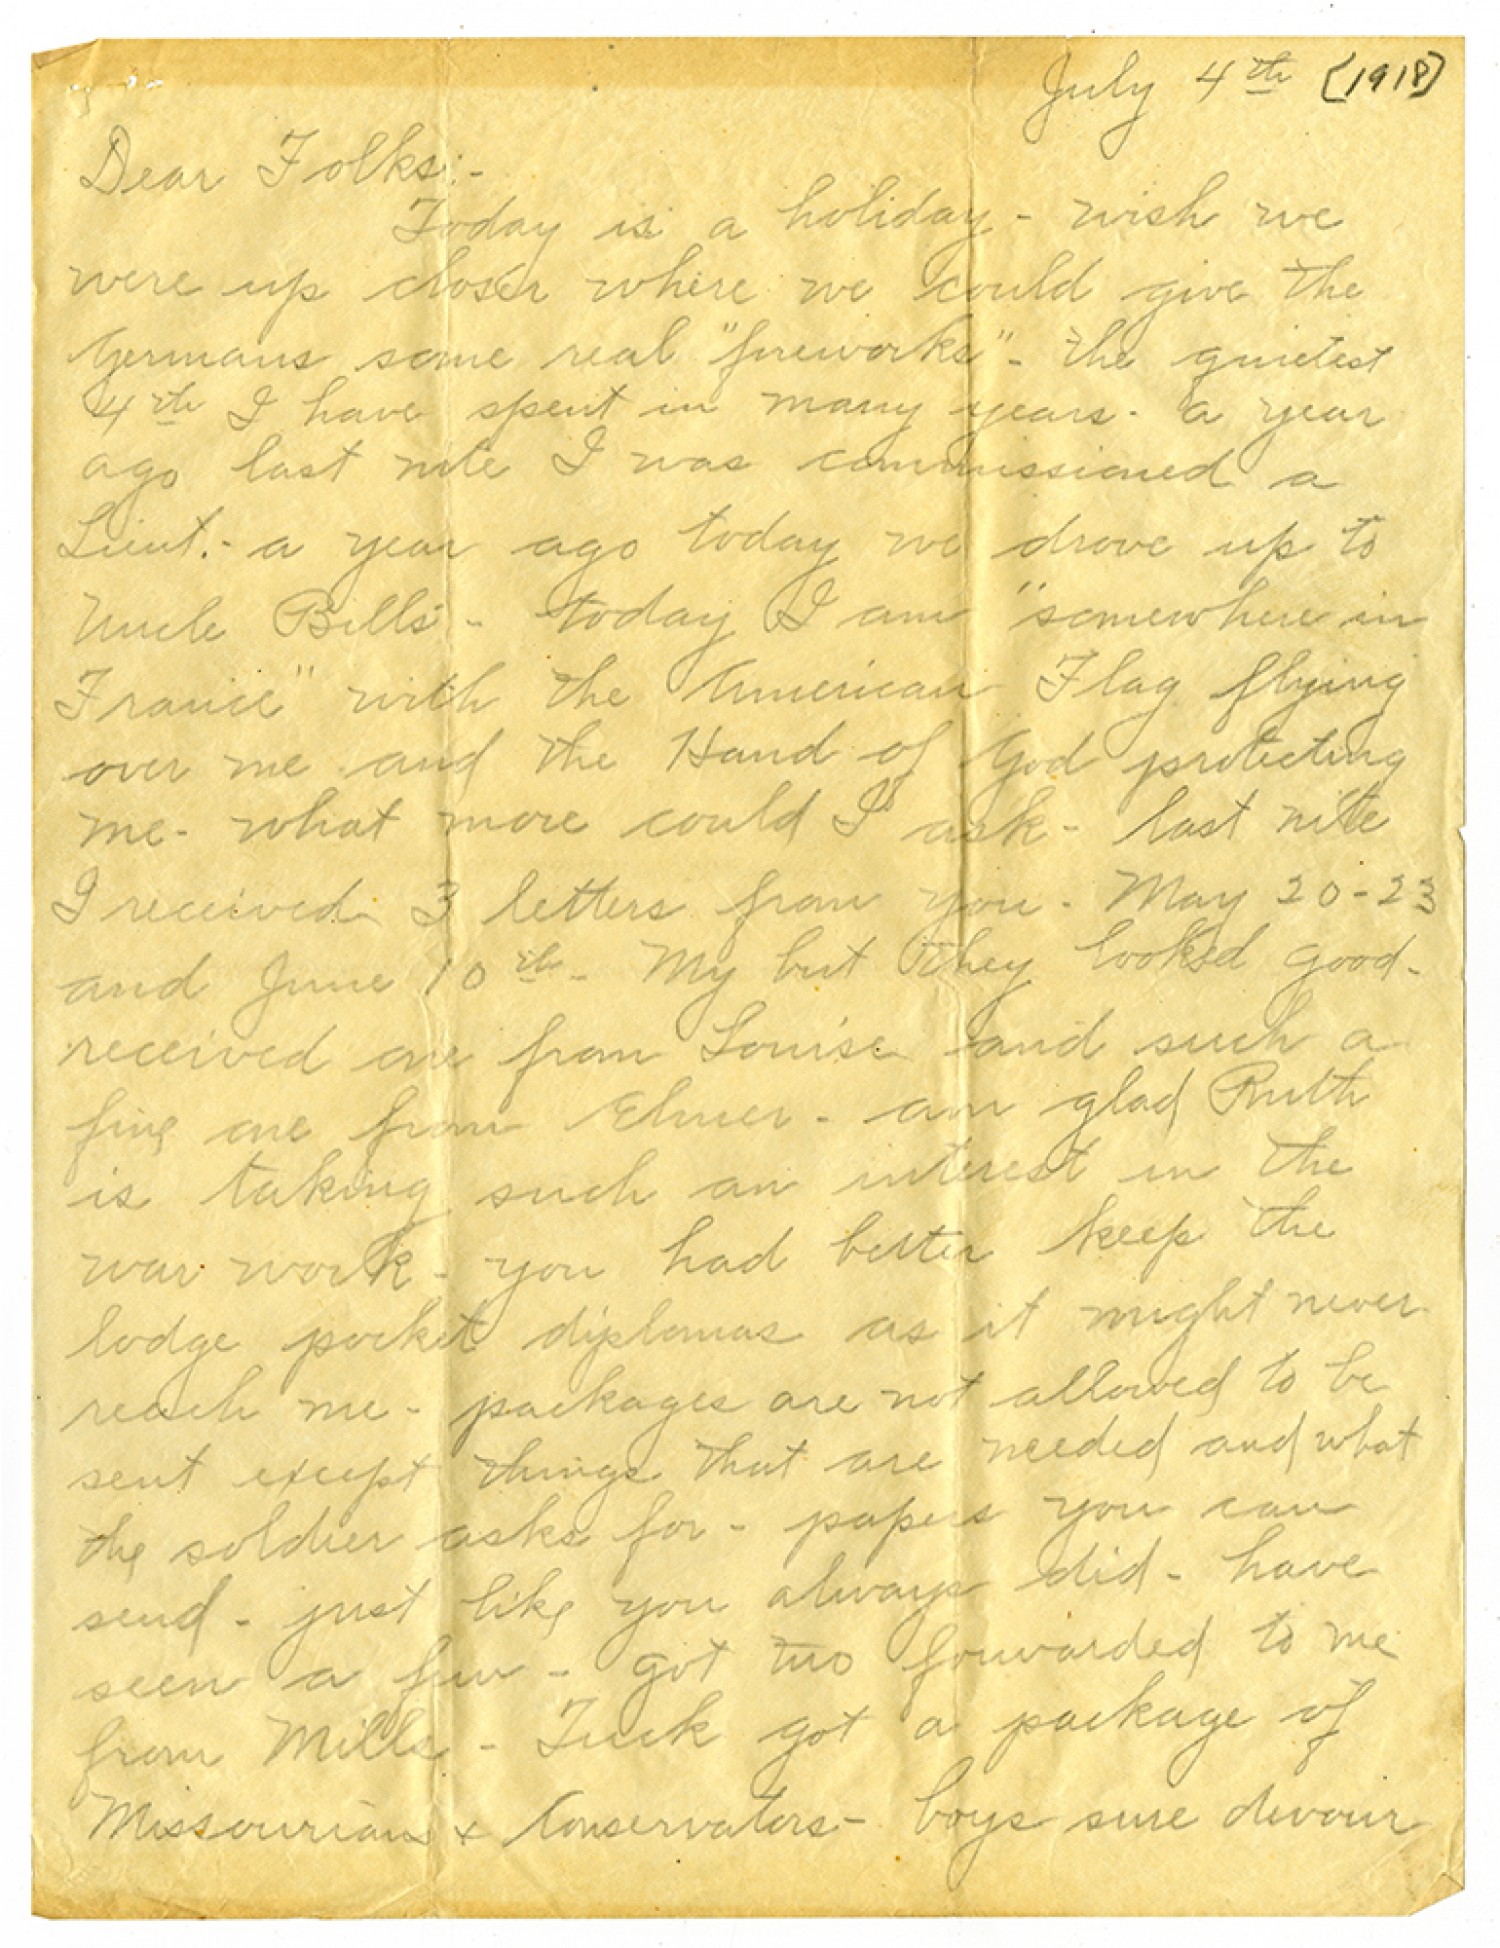 July 4th [1918]
Dear Folks:-
Today is a holiday - wish we
were up closer where we could give the
Germans some real "fireworks" - the quietest
4th I have spent in many years - a year
ago last nite I was commissioned a
Lieut. - a year ago today we drove up to
Uncle Bills - today I am "somewhere in
France" with the American Flag flying
over me and the Hand of God protecting
me - what more could I ask - last nite
I received 3 letters from you - May 20-23
and June 10th - My but they looked good -
received one from Louise and such a
fine one from Elmer - am glad Ruth
is taking such an interest in the
war work - you had better keep the
lodge pocket diplomas as it might never
reach me - packages are not allowed to be
sent except things that are needed and what
the soldier asks for - papers you can
send - just like you always did - have
seen a few - got two forwarded to me
from Mills - Tuck got a package of
Missourians & Conservators - boys sure devour